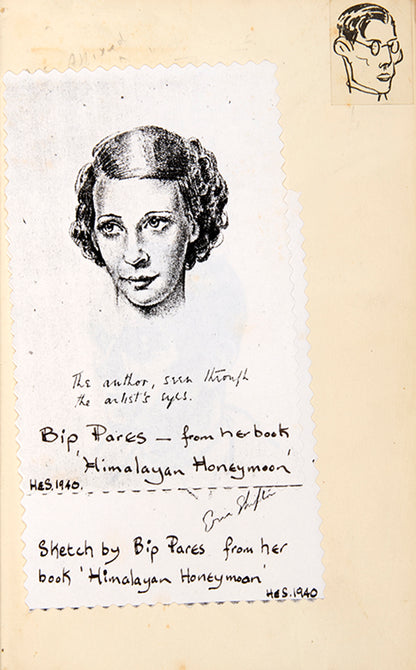 The author, seen through
the artist's eyes.
Bip Pares – from her book
'Himalayan Honeymoon'
H&S. 1940.
Sketch by Bip Pares from her
book 'Himalayan Honeymoon'
H&S. 1940